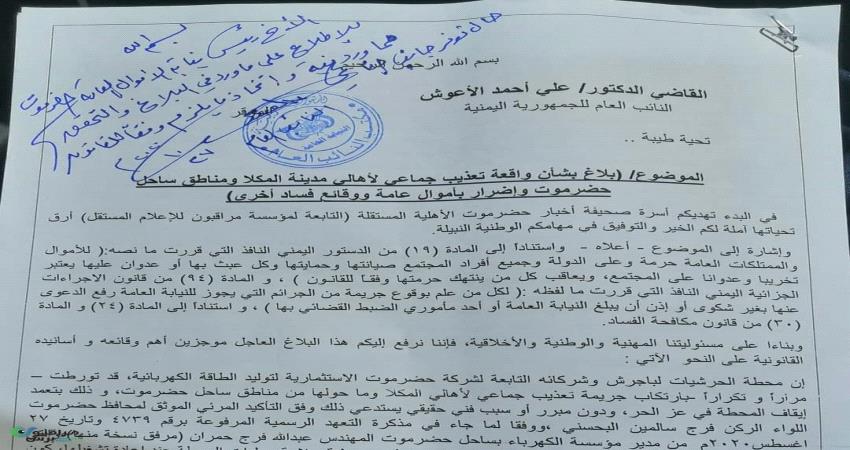 بسم الله
الأخ رئيس نيابة الأموال العامة حضرموت
للاطلاع على ما ورد في البلاغ والتحقق
مما ورد فيه واتخاذ ما يلزم وفقا للقانون
بسم الله الرحمن الرحيم
القاضي الدكتور/ علي أحمد الأعوش
النائب العام للجمهورية اليمنية
تحية طيبة ..
الموضوع/ (بلاغ بشأن واقعة تعذيب جماعي لأهالي مدينة المكلا ومناطق ساحل
حضرموت وإضرار بأموال عامة ووقائع فساد أخرى)
في البدء تهديكم أسرة صحيفة أخبار حضرموت الأهلية المستقلة (التابعة لمؤسسة مراقبون للإعلام المستقل) أرق
تحياتها آملة لكم الخير والتوفيق في مهامكم الوطنية النبيلة.
وإشارة إلى الموضوع - أعلاه - واستناداً إلى المادة (١٩) من الدستور اليمني النافذ التي قررت ما نصه:( للأموال
والممتلكات العامة حرمة وعلى الدولة وجميع أفراد المجتمع صيانتها وحمايتها وكل عبث بها أو عدوان عليها يعتبر
تخريبا وعدوانا على المجتمع، ويعاقب كل من ينتهك حرمتها وفقا للقانون ) ، و المادة (٩٤) من قانون الاجراءات
الجزائية اليمني النافذ التي قررت ما لفظه :( لكل من علم بوقوع جريمة من الجرائم التي يجوز للنيابة العامة رفع الدعوى
عنها بغير شكوى أو إذن أن يبلغ النيابة العامة أو أحد مأموري الضبط القضائي بها ) ، و استناداً إلى المادة (٢٤) و المادة
(٣٠) من قانون مكافحة الفساد.
وبناءا على مسئوليتنا المهنية والوطنية والأخلاقية، فإننا نرفع إليكم هذا البلاغ العاجل موجزين أهم وقائعه و أسانيده
القانونية على النحو الآتي :
إن محطة الحرشيات لباجرش وشركائه التابعة لشركة حضرموت الاستثمارية لتوليد الطاقة الكهربائية، قد تورطت –
مراراً و تكراراً -بارتكاب جريمة تعذيب جماعي لأهالي المكلا وما حولها من مناطق ساحل حضرموت، و ذلك بتعمد
إيقاف المحطة في عز الحر، ودون مبرر أو سبب فني حقيقي يستدعي ذلك وفق التأكيد المرئي الموثق لمحافظ حضرموت
اللواء الركن فرج سالمين البحسني ،ووفقا لما جاء في مذكرة التعهد الرسمية المرفوعة برقم ٤٧٣٩ وتاريخ ٢٧
اغسطس٢٠٢٠م من مدير مؤسسة الكهرباء بساحل حضرموت المهندس عبدالله فرج حمران (مرفق نسخة